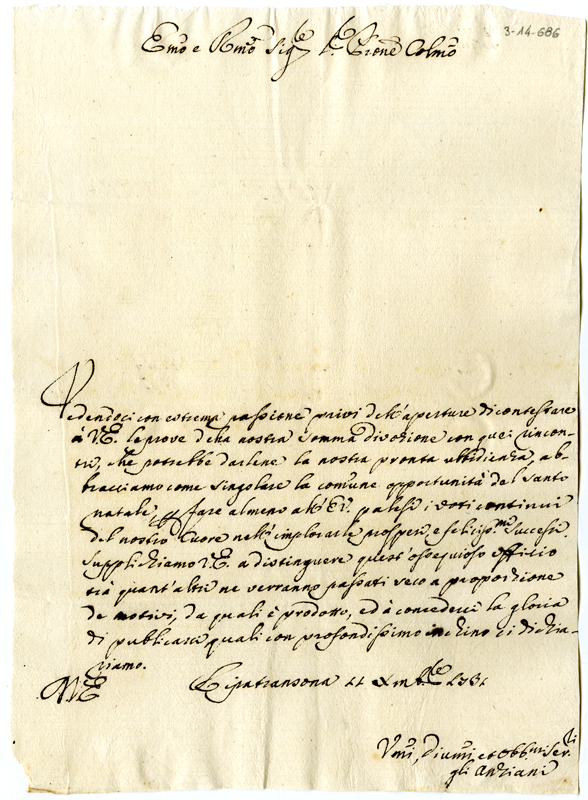 3-14-686
Emo e Rmo Sigre Pne Prone Colmo
Vedendoci con estrema passione privi dell'aperture di contestare
à V.E. le prove della nostra somma divozione con quei rincon-
tri, che potrebbe darlene la nostra pronta ubbidienza, ab-
bracciamo come singolare la comune opportunità del Santo
natale p fare almeno all'E.V. palesi i voti continui
del nostro Cuore nell'implorarle prosperi, e feliciss.mi successi.
Supplichiamo V.E. a distinguere quest'ossequioso officio
trà quant'altri ne verranno passati seco a proporzione
de motivi, da quali è prodotto, ed à concederci la gloria
di publicarci quali con profondissimo inchino ci dichia-
riamo.
V.E. Ripatransona 11 Xmbre
Umi, Divmi et Obbmi Servli
gli Anziani